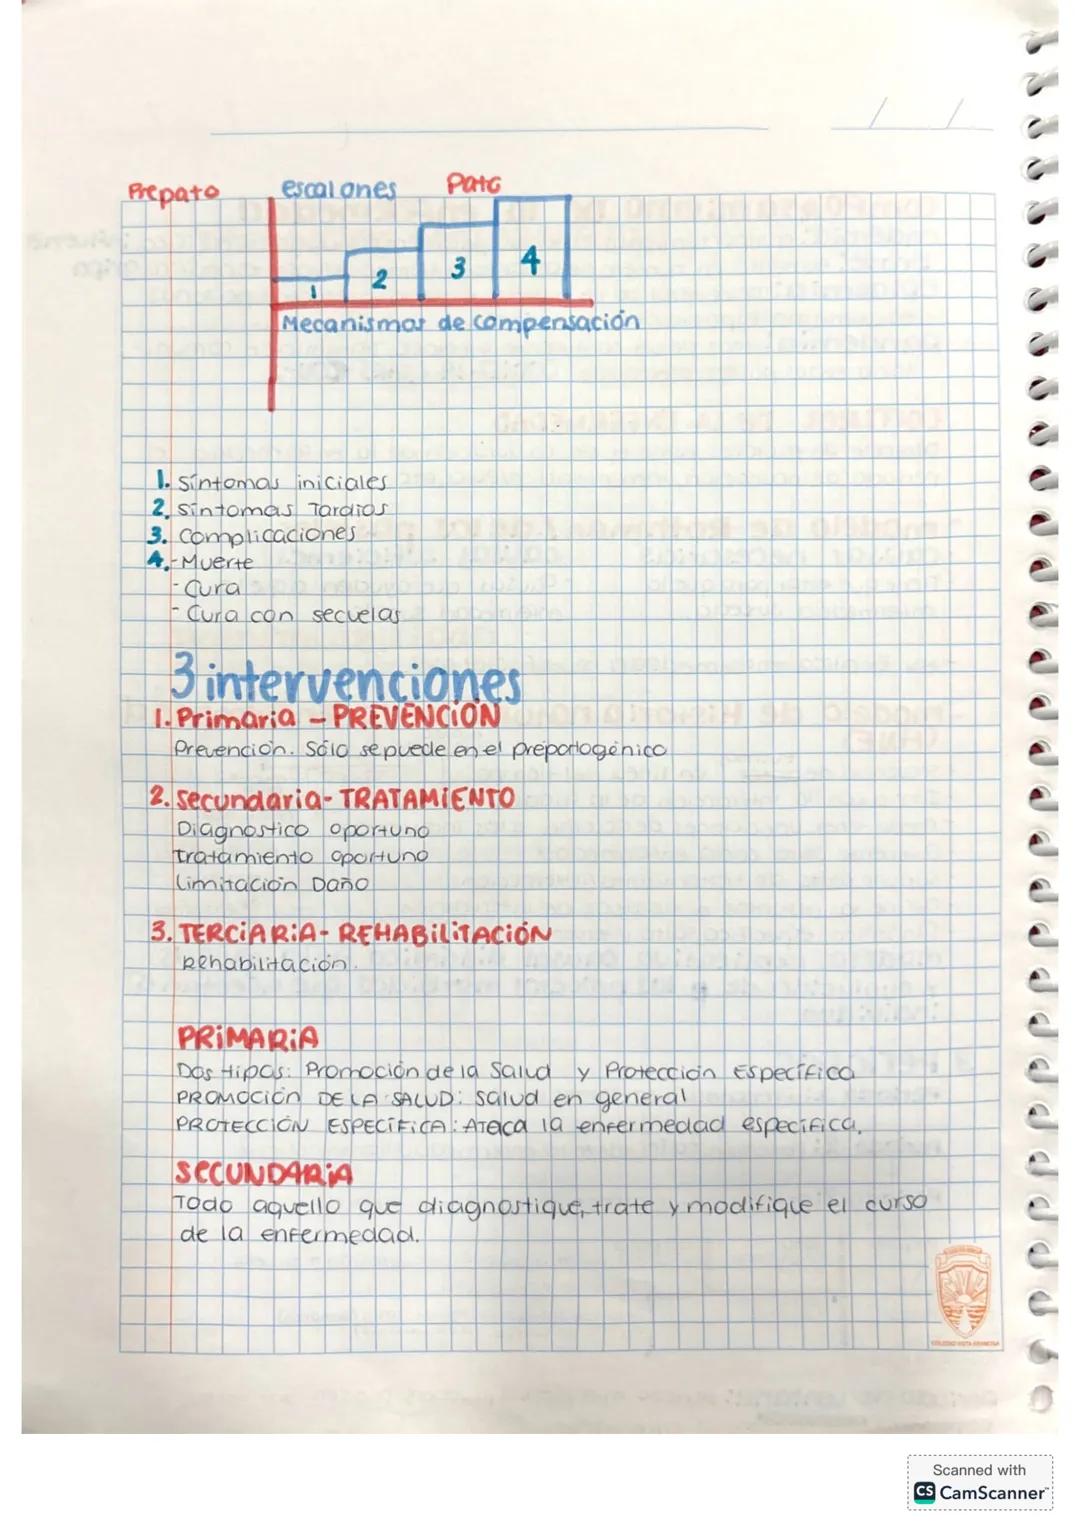 Prepato escalones Pato
1 2 3 4
Mecanismos de compensación
1. Síntomas iniciales
2. Síntomas Tardios
3. Complicaciones
4.-Muerte
-Cura
-Cura con secuelas
3 intervenciones
1. Primaria - PREVENCIÓN
Prevención. Sólo se puede en el preportogénico
2. Secundaria- TRATAMIENTO
Diagnostico oportuno
tratamiento oportuno
Limitación Daño
3. TERCIARIA- REHABILITACIÓN
Rehabilitación.
PRIMARIA
Dos tipos: Promoción de la Salud y Protección Específica
PROMOCIÓN DE LA SALUD: Salud en general
PROTECCIÓN ESPECÍFICA: Ataca la enfermedad especifica.
SECUNDARIA
Todo aquello que diagnostique, trate y modifique el curso
de la enfermedad.
Scanned with
CS CamScanner